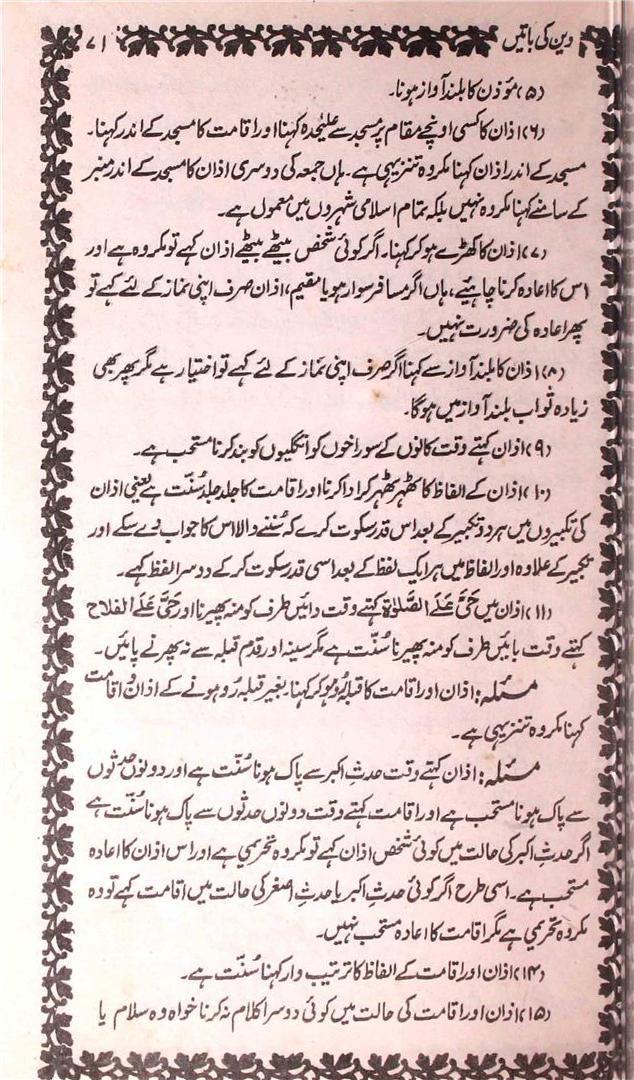 دین کی باتیں ۷۱
(۵) مؤذن کا بلند آواز ہونا۔
(۶) اذان کا کسی اونچے مقام پر مسجد سے علیٰحدہ کہنا اور اقامت کا مسجد کے اندر کہنا۔
مسجد کے اندر اذان کہنا مکروہ تنزیہی ہے۔ ہاں جمعہ کی دوسری اذان کا مسجد کے اندر منبر
کے سامنے کہنا مکروہ نہیں بلکہ تمام اسلامی شہروں میں معمول ہے۔
(۷) اذان کا کھڑے ہو کر کہنا۔ اگر کوئی شخص بیٹھے بیٹھے اذان کہے تو مکروہ ہے اور
اس کا اعادہ کرنا چاہیئے، ہاں اگر مسافر سوار ہو یا مقیم، اذان صرف اپنی نماز کے لئے کہے تو
پھر اعادہ کی ضرورت نہیں۔
(۸) اذان کا بلند آواز سے کہنا اگر صرف اپنی نماز کے لئے کہے تو اختیار ہے مگر پھر بھی
زیادہ ثواب بلند آواز میں ہوگا۔
(۹) اذان کہتے وقت کانوں کے سوراخوں کو انگلیوں کو بند کرنا مستحب ہے۔
(۱۰) اذان کے الفاظ کا ٹھہر ٹھہر کر ادا کرنا اور اقامت کا جلد جلد سُنّت ہے یعنی اذان
کی تکبیروں میں ہر دو تکبیر کے بعد اس قدر سکوت کرے کہ سُننے والا اس کا جواب دے سکے اور
تکبیر کے علاوہ اور الفاظ میں ہر ایک لفظ کے بعد اسی قدر سکوت کر کے دوسرا لفظ کہے۔
(۱۱) اذان میں حَیَّ عَلَے الصَّلٰوۃ کہتے وقت دائیں طرف کو منہ پھیرنا اور حَیَّ عَلَے الفلاح
کہتے وقت بائیں طرف کو منہ پھیرنا سُنّت ہے مگر سینہ اور قدم قبلہ سے نہ پھرنے پائیں۔
مسئلہ: اذان اور اقامت کا قبلہ رُو ہو کر کہنا، بغیر قبلہ رُو ہونے کے اذان و اقامت
کہنا مکروہ تنزیہی ہے۔
مسئلہ: اذان کہتے وقت حدثِ اکبر سے پاک ہونا سُنّت ہے اور دونوں حدثوں
سے پاک ہونا مستحب ہے اور اقامت کہتے وقت دونوں حدثوں سے پاک ہونا سُنّت ہے
اگر حدثِ اکبر کی حالت میں کوئی شخص اذان کہے تو مکروہ تحریمی ہے اور اس اذان کا اعادہ
مستحب ہے۔ اسی طرح اگر کوئی حدثِ اکبر یا حدثِ اصغر کی حالت میں اقامت کہے تو وہ
مکروہ تحریمی ہے مگر اقامت کا اعادہ مستحب نہیں۔
(۱۴) اذان اور اقامت کے الفاظ کا ترتیب وار کہنا سُنّت ہے۔
(۱۵) اذان اور اقامت کی حالت میں کوئی دوسرا کلام نہ کرنا خواہ وہ سلام یا